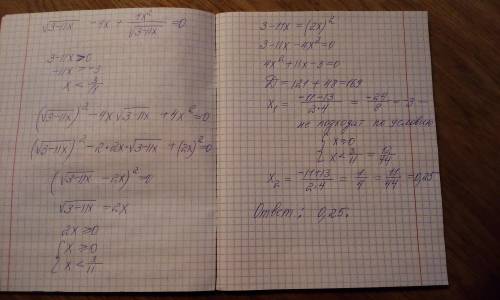 √(3-11x) - 4x + 4x²/√(3-11x) = 0
3-11x > 0
-11x = -3
x < 3/11
(√(3-11x))² - 4x√(3-11x) + 4x² = 0
(√(3-11x))² - 2·2x·√(3-11x) + (2x)² = 0
(√(3-11x) - 2x)² = 0
√(3-11x) = 2x
2x ≥ 0
{ x ≥ 0
{ x < 3/11
3-11x = (2x)²
3-11x-4x² = 0
4x²+11x-3 = 0
D = 121 + 48 = 169
x₁ = (-11-13)/(2·4) = -24/8 = -3 -
не подходит по условию
{ x ≥ 0
{ x < 3/11 = 12/44
x₂ = (-11+13)/(2·4) = 1/4 = 11/44 = 0,25
Ответ: 0,25.